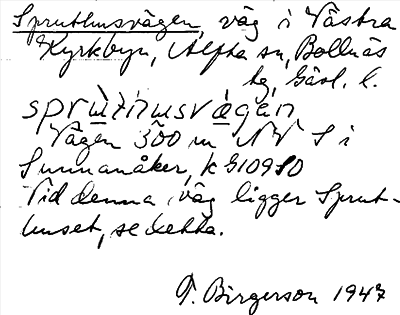 Spruthusvägen, väg i Västra
Kyrkbyn, Alfta sn, Bollnäs
tg, Gävl. l.
sprùt́husvägen
Vägen 300 m NV S i
Sunnanåker, k G10980
Vid denna väg ligger Sprut-
huset, se detta.
T. Birgerson 1947